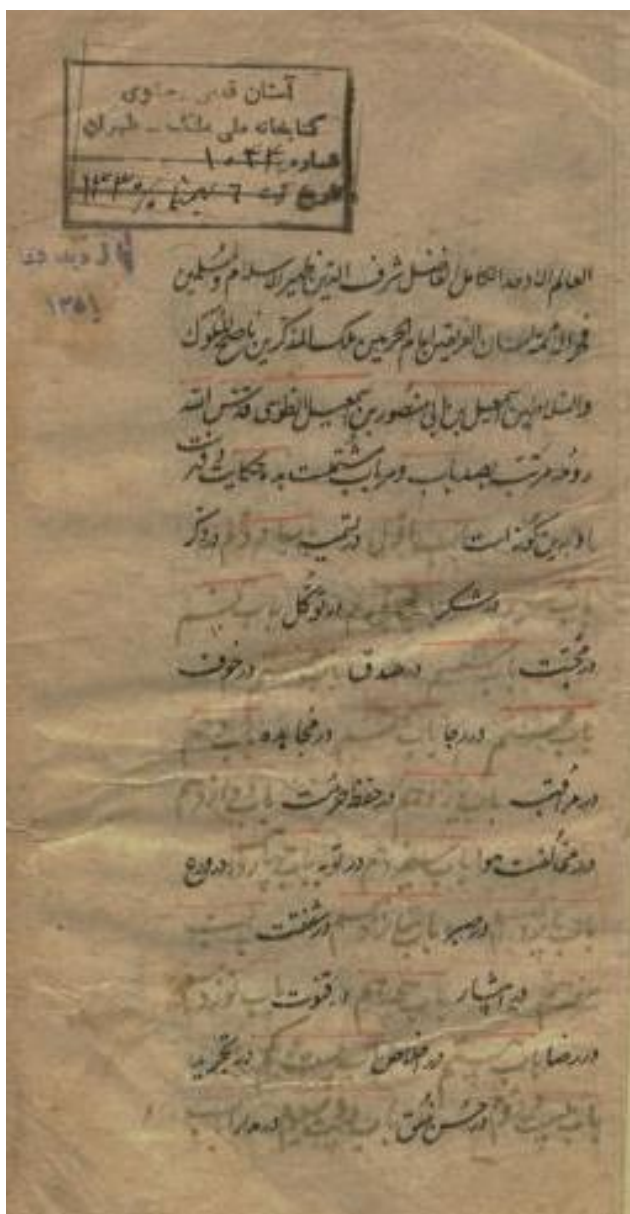 آستان قدس رضوی
کتابخانه ملی ملک - طهران
شماره
تاریخ ثبت
۱۳۵۱
العالم الاوحد الکامل الفاضل شرف الدین ظهیر الاسلام والمسلمین
فخر الائمة لسان الفریقین امام الحرمین ملک المذکرین ناصح الملوک
والسلاطین اسمعیل بن ابی منصور بن اسمعیل الطوسی قدس الله
روحه مرتب بصد باب و هر باب مشتملست به ده حکایت و
بدین گونه است باب اول در تسمیه باب دوم در ذکر
باب سیوم در شکر باب چهارم در توکل باب پنجم
در محبت باب ششم در صدق باب هفتم در خوف
باب هشتم در رجا باب نهم در مجاهده باب دهم
در مراقبت باب یازدهم در حفظ حرمت باب دوازدهم
در مخالفت هوا باب سیزدهم در توبه باب چهاردهم در ورع
باب پانزدهم در صبر باب شانزدهم در شفقت باب
هفدهم در ایثار باب هجدهم در فتوت باب نوزدهم
در رضا باب بیستم در اخلاص باب بیست و یکم در تجرید
باب بیست و دوم در حسن خلق باب بیست و سیوم در مدارا باب